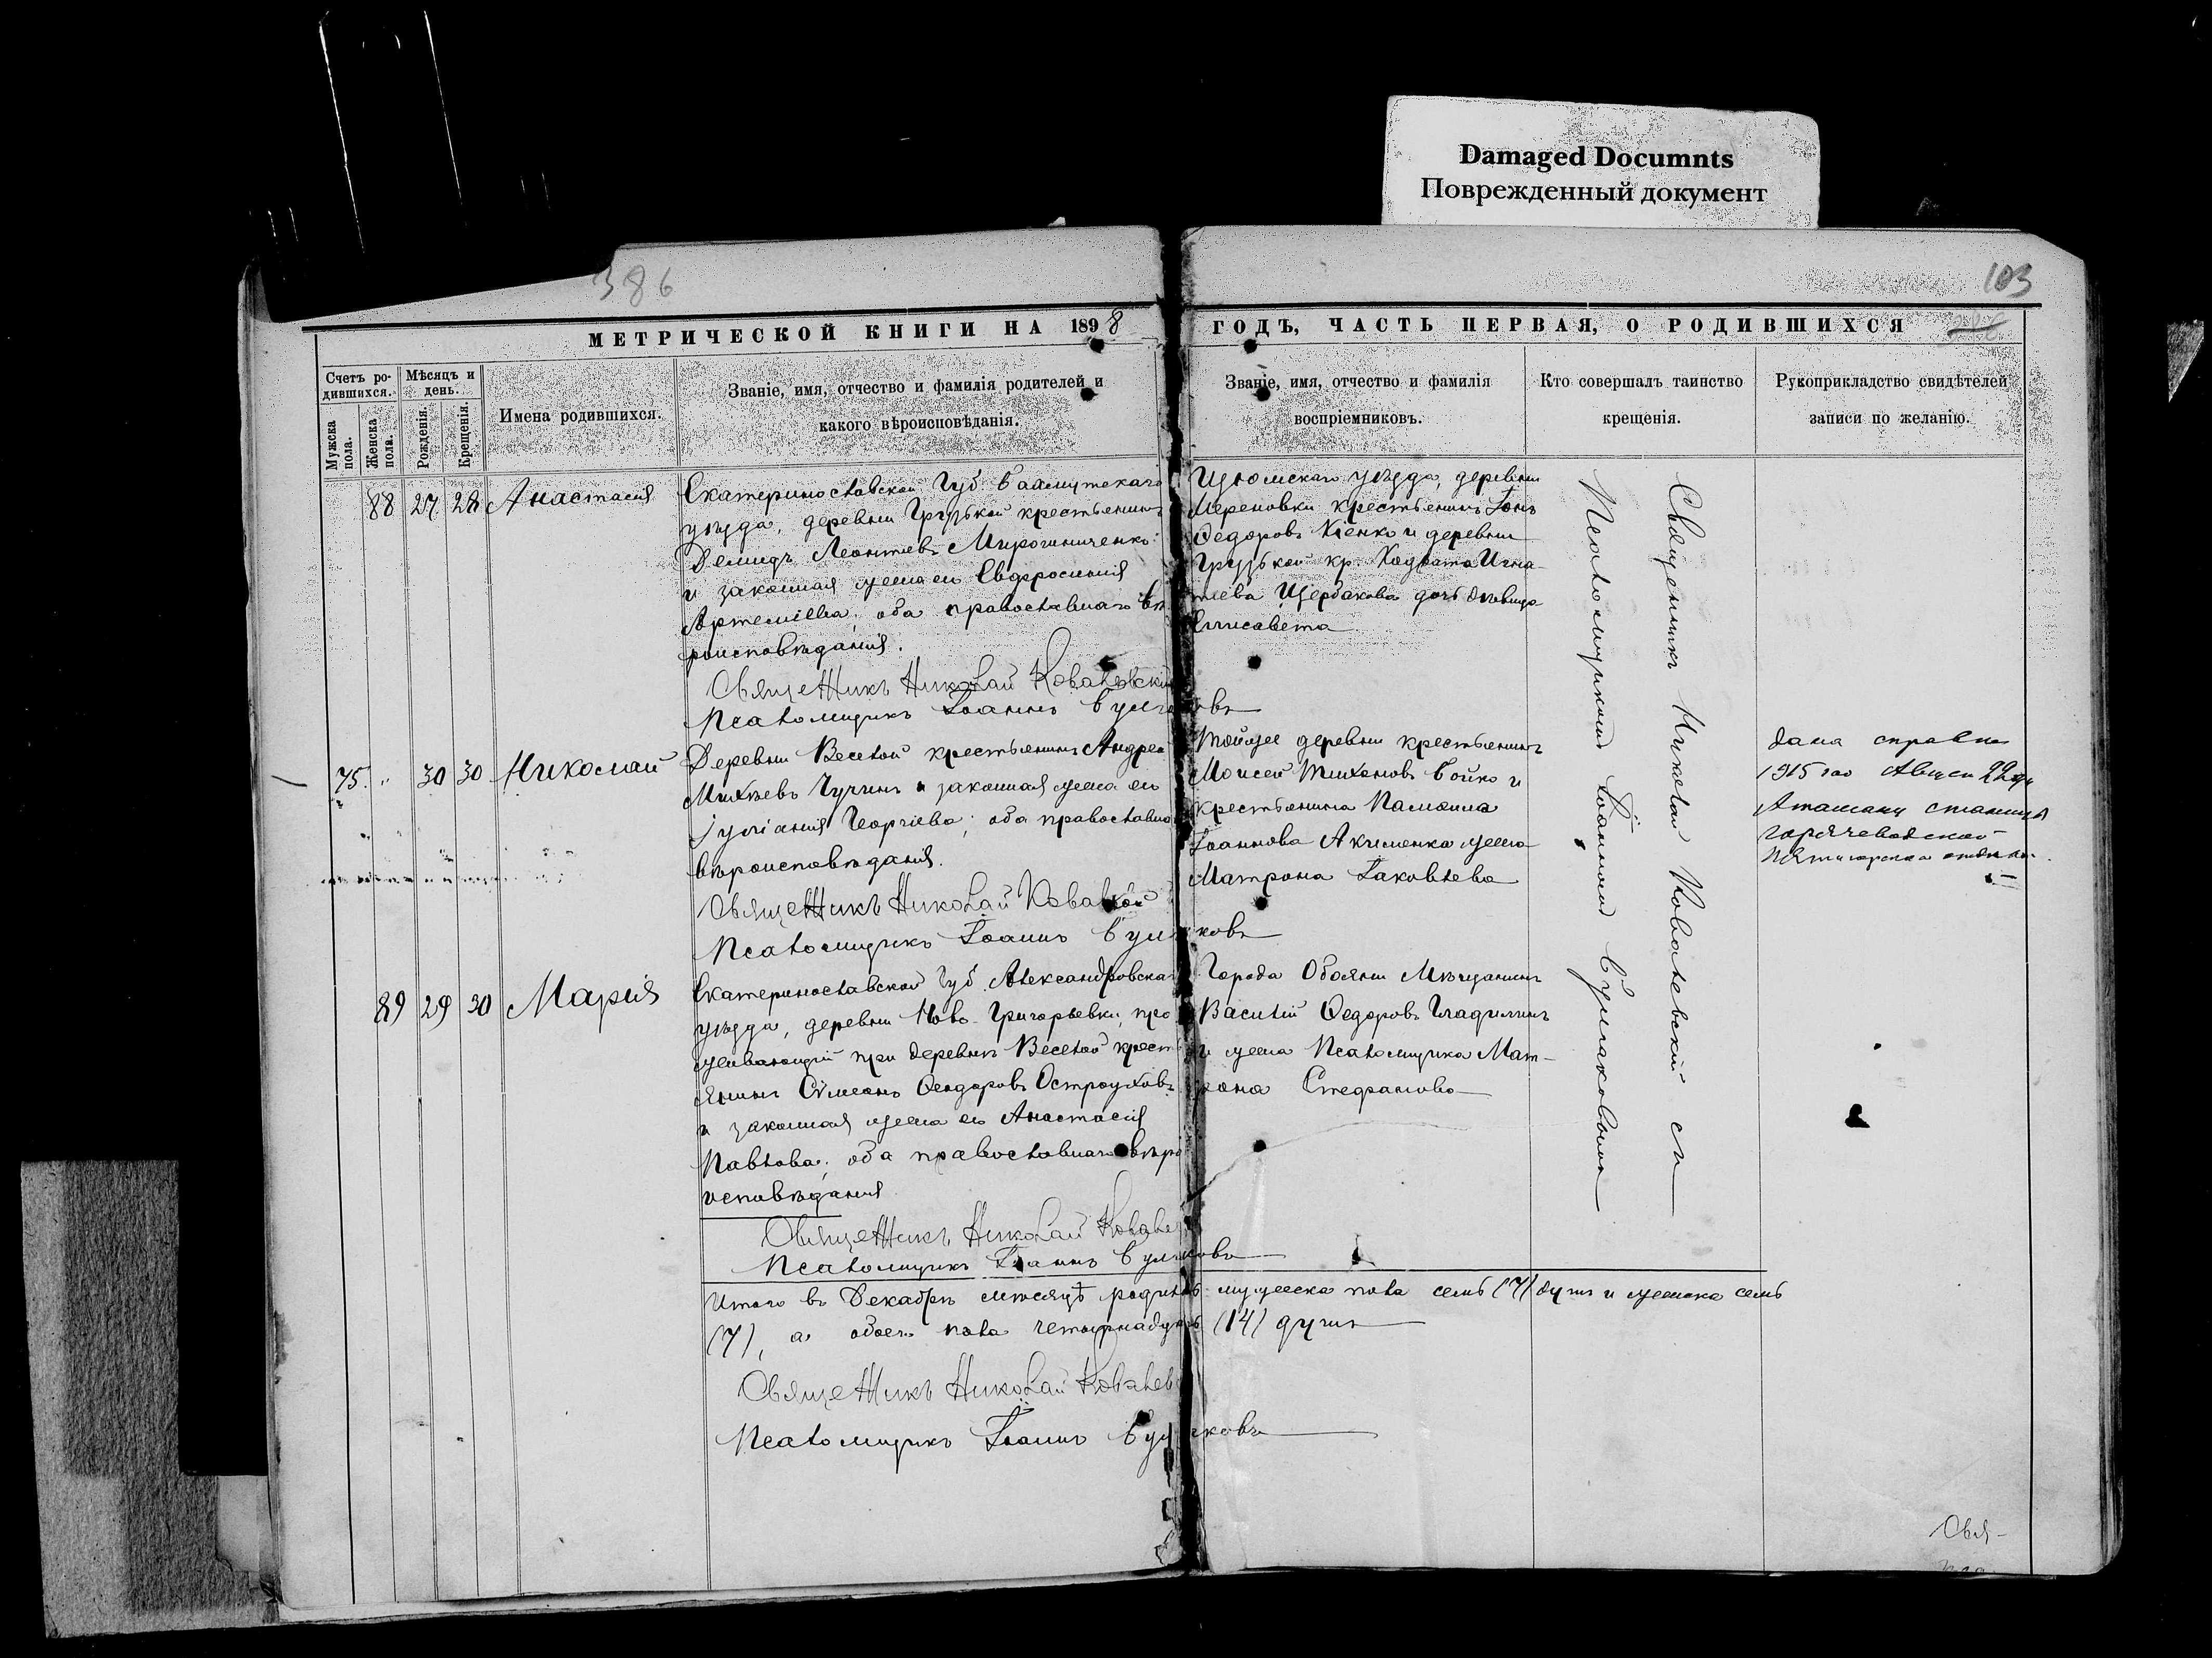 Damaged Documnts
Поврежденный документ
386
103
МЕТРИЧЕСКОЙ КНИГИ НА 1898
ГОДЪ, ЧАСТЬ ПЕРВАЯ, О РОДИВШИХСЯ
Счетъ ро-
дившихся.
Мужска
пола.
Женска
пола.
Мѣсяцъ и
день.
Рожденія.
Крещенія.
Имена родившихся.
Званіе, имя, отчество и фамилія родителей и
какого вѣроисповѣданія.
Званіе, имя, отчество и фамилія
воспріемниковъ.
Кто совершалъ таинство
крещенія.
Рукоприкладство свидѣтелей
записи по желанію.
88 27 28 Анастасія
Екатеринославской Губ. Бахмутскаго
уѣзда, деревни Грузской крестьянинъ
Демидъ Леонтіевъ Мирошниченко
и законная жена его Евфросинія
Артеміева; оба православнаго вѣ-
роисповѣданія.
Священникъ Николай Ковалевскій
Псаломщикъ Іоаннъ
Изюмскаго уѣзда, деревни
крестьянинъ
Федоровъ и деревни
Грузской кр. Игна-
тіева Щербакова дочь дѣвица
Елисавета
75 " 30 30 Николай
Деревни Веселой крестьянинъ Андрей
законная жена его
Іуліанія Георгіева; оба православнаго
вѣроисповѣданія.
Священникъ Николай
Псаломщикъ Іоаннъ
Тойже деревни крестьянинъ
Моисей Тихоновъ Бойко и
крестьянина
Іоаннова Акименка жена
Матрона Іаковлева
дана справка
1915 го Август 22 дня
Атаману станицы
Горячеводской
89 29 30 Марія
Екатеринославской Губ. Александровскаго
уѣзда, деревни Ново-Григорьевки, про
живающій при деревнѣ Веселой кресть
янинъ Сѵмеонъ Феодоровъ Остроуховъ
и законная жена его Анастасія
Павлова; оба православнаго вѣро
исповѣданія
Священникъ Николай
Псаломщикъ Іоаннъ
Города Обояни Мѣщанинъ
Василій Федоровъ Гладилинъ
и жена Псаломщика Мат-
рона Стефанова
Священникъ Николай Ковалевскій съ
Псаломщикомъ Іоанномъ
Итого въ Декабрѣ мѣсяцѣ родилось мужеска пола семь (7) душъ и женска семь
(7), а обоего пола четырнадцать (14) душъ
Священникъ Николай
Псаломщикъ Іоаннъ
Свя-